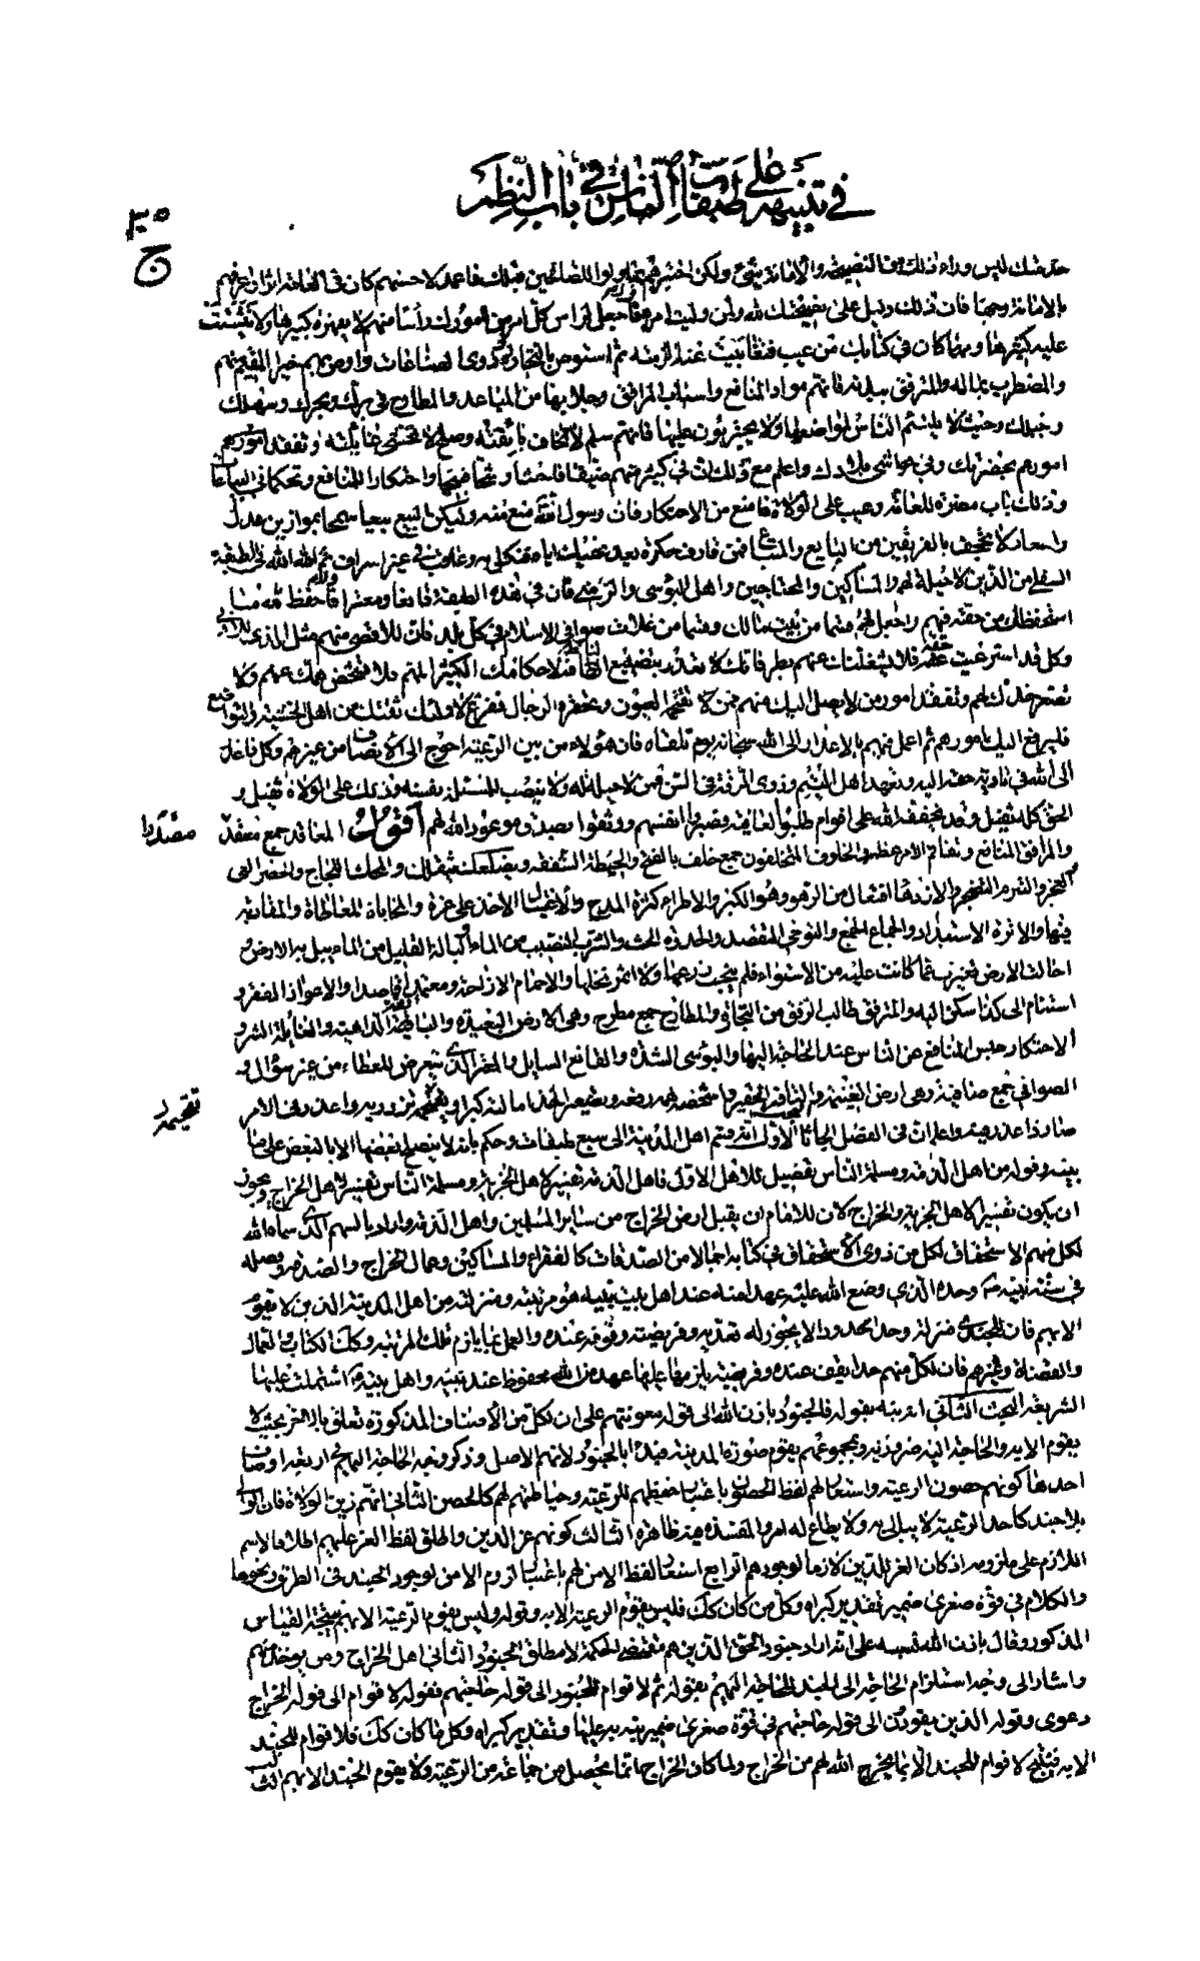 في تنبيهه على طبقات الناس في باب النظم
ج
حدسك ليس وراء ذلك من النصيحة والامانة شيئ ولكن اختبرهم بما ولوا للصالحين قبلك فاعمد لاحسنهم كان في العامة اثرا واعرفهم
بالامانة وجها فان ذلك دليل على نصيحتك لله ولمن وليت امره واجعل لراس كل امر من امورك راسا منهم لا يقهره كبيرها ولا يتشتت
عليه كثيرها ومهما كان في كتابك من عيب فتغابيت عنه الزمته ثم استوص بالتجار وذوى الصناعات واوص بهم خيرا المقيم منهم
والمضطرب بماله والمترفق ببدنه فانهم مواد المنافع واسباب المرافق وجلابها من المباعد والمطارح في برك وبحرك وسهلك
وجبلك وحيث لا يلتئم الناس لمواضعها ولا يجترؤن عليها فانهم سلم لا تخاف بائقته وصلح لا تخشى غائلته وتفقد امورهم
امورهم بحضرتك وفي حواشي بلادك واعلم مع ذلك ان في كثير منهم ضيقا فاحشا وشحا قبيحا واحتكارا للمنافع وتحكما في البياعات
وذلك باب مضرة للعامة وعيب على الولاة فامنع من الاحتكار فان رسول الله منع منه وليكن البيع بيعا سمحا بموازين عدل
واسعار لا تجحف بالفريقين من البايع والمبتاع فمن قارف حكرة بعد نهيك اياه فنكل به وعاقب في غير اسراف ثم الله الله في الطبقة
السفلى من الذين لا حيلة لهم والمساكين والمحتاجين واهل البؤسى والزمنى فان في هذه الطبقة قانعا ومعترا واحفظ لله ما
استحفظك من حقه فيهم واجعل لهم قسما من بيت مالك وقسما من غلات صوافي الاسلام في كل بلد فان للاقصى منهم مثل الذي للادنى
وكل قد استرعيت حقه فلا يشغلنك عنهم بطر فانك لا تعذر بتضييع التافه لاحكامك الكثير المهم فلا تشخص همك عنهم ولا
تصعر خدك لهم وتفقد امور من لا يصل اليك منهم ممن تقتحمه العيون وتحقره الرجال ففرغ لاولئك ثقتك من اهل الخشية والتواضع
فليرفع اليك امورهم ثم اعمل فيهم بالاعذار الى الله سبحانه يوم تلقاه فان هؤلاء من بين الرعية احوج الى الانصاف من غيرهم وكل فاعذر
الى الله في تادية حقه اليه وتعهد اهل اليتم وذوى الرقة في السن ممن لا حيلة له ولا ينصب للمسئلة نفسه وذلك على الولاة ثقيل و
الحق كله ثقيل وقد يخففه الله على اقوام طلبوا العاقبة فصبروا انفسهم ووثقوا بصدق موعود الله لهم اقول المعاقد جمع معقد
والمرافق المنافع وتفاقم الامر عظم والخلوف المتخلفون جمع خلف بالفتح والحيطة الشفقة ... والمحك اللجاج والحصر العى
... والازدهاء افتعال من الزهو وهو الكبر والاطراء كثرة المدح والاغتيال الاخذ على غرة والمحاباة المعاطاة والمقاربة
فيها والاثرة الاستبداد والجماع الجمع والتوخى القصد والحدوة الحث والشرب النصيب من الماء والبالة القليل من الماء يبل به الارض و
احالت الارض تغيرت عما كانت عليه من الاستواء فلم ينجب زرعها ولا اثمر نخلها والاجمام الاراحة ومعتمدا قاصدا والاعواز الفقر و
استنام الى كذا سكن اليه والمترفق طالب الرفق من التجارة والمطارح جمع مطرح وهى الارض البعيدة والبائقة الداهية والغائلة الشر و
الاحتكار حبس المنافع عن الناس عند الحاجة اليها والبؤسى الشدة والقانع السايل والمعتر الذى يتعرض للعطاء من غير سؤال و
الصوافي جمع صافية وهى ارض الغنيمة والتافه الحقير واشخص همه رفعه وتصعير الخد امالته كبرا وتقتحمه تزدريه واعذر في الامر
صار ذا عذر فيه واعلم ان في الفصل ابحاثا الاول انه قسم اهل المدينة الى سبع طبقات وحكم بانه لا يصلح بعضها الا بالبعض على ما
بينه وقوله من اهل الذمة ومسلمة الناس تفصيل للاهل الاولى فاهل الذمة تفسير لاهل الجزية ومسلمة الناس تفسير لاهل الخراج ويجوز
ان يكون تفسيرا لاهل الجزية والخراج لان للامام ان يقبل ارض الخراج من ساير المسلمين واهل الذمة واراد بالسهم الذى سماه الله
لكل منهم الاستحقاق لكل من ذوى الاستحقاق في كتابه اجمالا من الصدقات كالفقراء والمساكين وعمال الخراج والصدقة وفصله
في سنة نبيه وحده الذي وضع الله عليه عهدا منه عند اهل بيت نبيه هو مرتبته ومنزلته من اهل المدينة الذين لا تقوم
الا بهم فان للجندى منزلة وحدا محدودا لا يجوز له تعديه وفريضته وقوفه عنده والعمل بما يلزم تلك المرتبة وكك الكتاب والعمال
والقضاة وغيرهم فان لكل منهم حدا يقف عنده وفريضة يلزمها عليها عهد من الله محفوظ عند نبيه واهل بيته اشتملت عليها
الشريعة البحث الثاني انه نبه بقوله فالجنود باذن الله الى قوله معونتهم على ان لكل من الاصناف المذكورة تعلق بالاخر بحيث لا
يقوم الا به والحاجة اليه ضرورية وبمجموعهم يقوم صورة المدينة فبدا بالجنود لانهم الاصل وذكر وجه الحاجة اليهم في اربعة اوصاف
احدها كونهم حصون الرعية واستعار لهم لفظ الحصون باعتبار حفظهم للرعية وحياطتهم لهم كالحصن الثاني انهم زين الولاة فان الوالى
بلا جند كاحد الرعية لا يبالى به ولا يطاع له امر والمفسدة فيه ظاهرة الثالث كونهم عز الدين واطلق لفظ العز عليهم اطلاقا لاسم
اللازم على ملزومه اذ كان العز للدين لازما لوجودهم الرابع استعار لفظ الامن لهم باعتبار لزوم الامن لوجود الجند في الطرق ونحوها
والكلام في قوة صغرى ضمير تقدير كبراه وكل من كان كك فليس يقوم الرعية الا به وقوله وليس يقوم الرعية الا بهم نتيجة القياس
المذكور وقال باذن الله تنبيه على انه اراد جنود الحق الذين هم مقتضى الحكمة لا مطلق الجنود الثاني اهل الخراج ومن يوخذ منهم
واشار الى وجه استلزام الحاجة الى الجند للحاجة اليهم بقوله ثم لا قوام للجنود الى قوله حاجتهم فقوله لا قوام الى قوله الخراج
دعوى وقوله الذين يقوون الى قوله حاجتهم في قوة صغرى ضمير نبه به عليها وتقدير كبراه وكل ما كان كك فلا قوام للجند
الا به فينتج لا قوام للجند الا بما يخرج الله لهم من الخراج ولما كان الخراج انما يحصل من جماعة من الرعية ولا يقوم الجند الا بهم